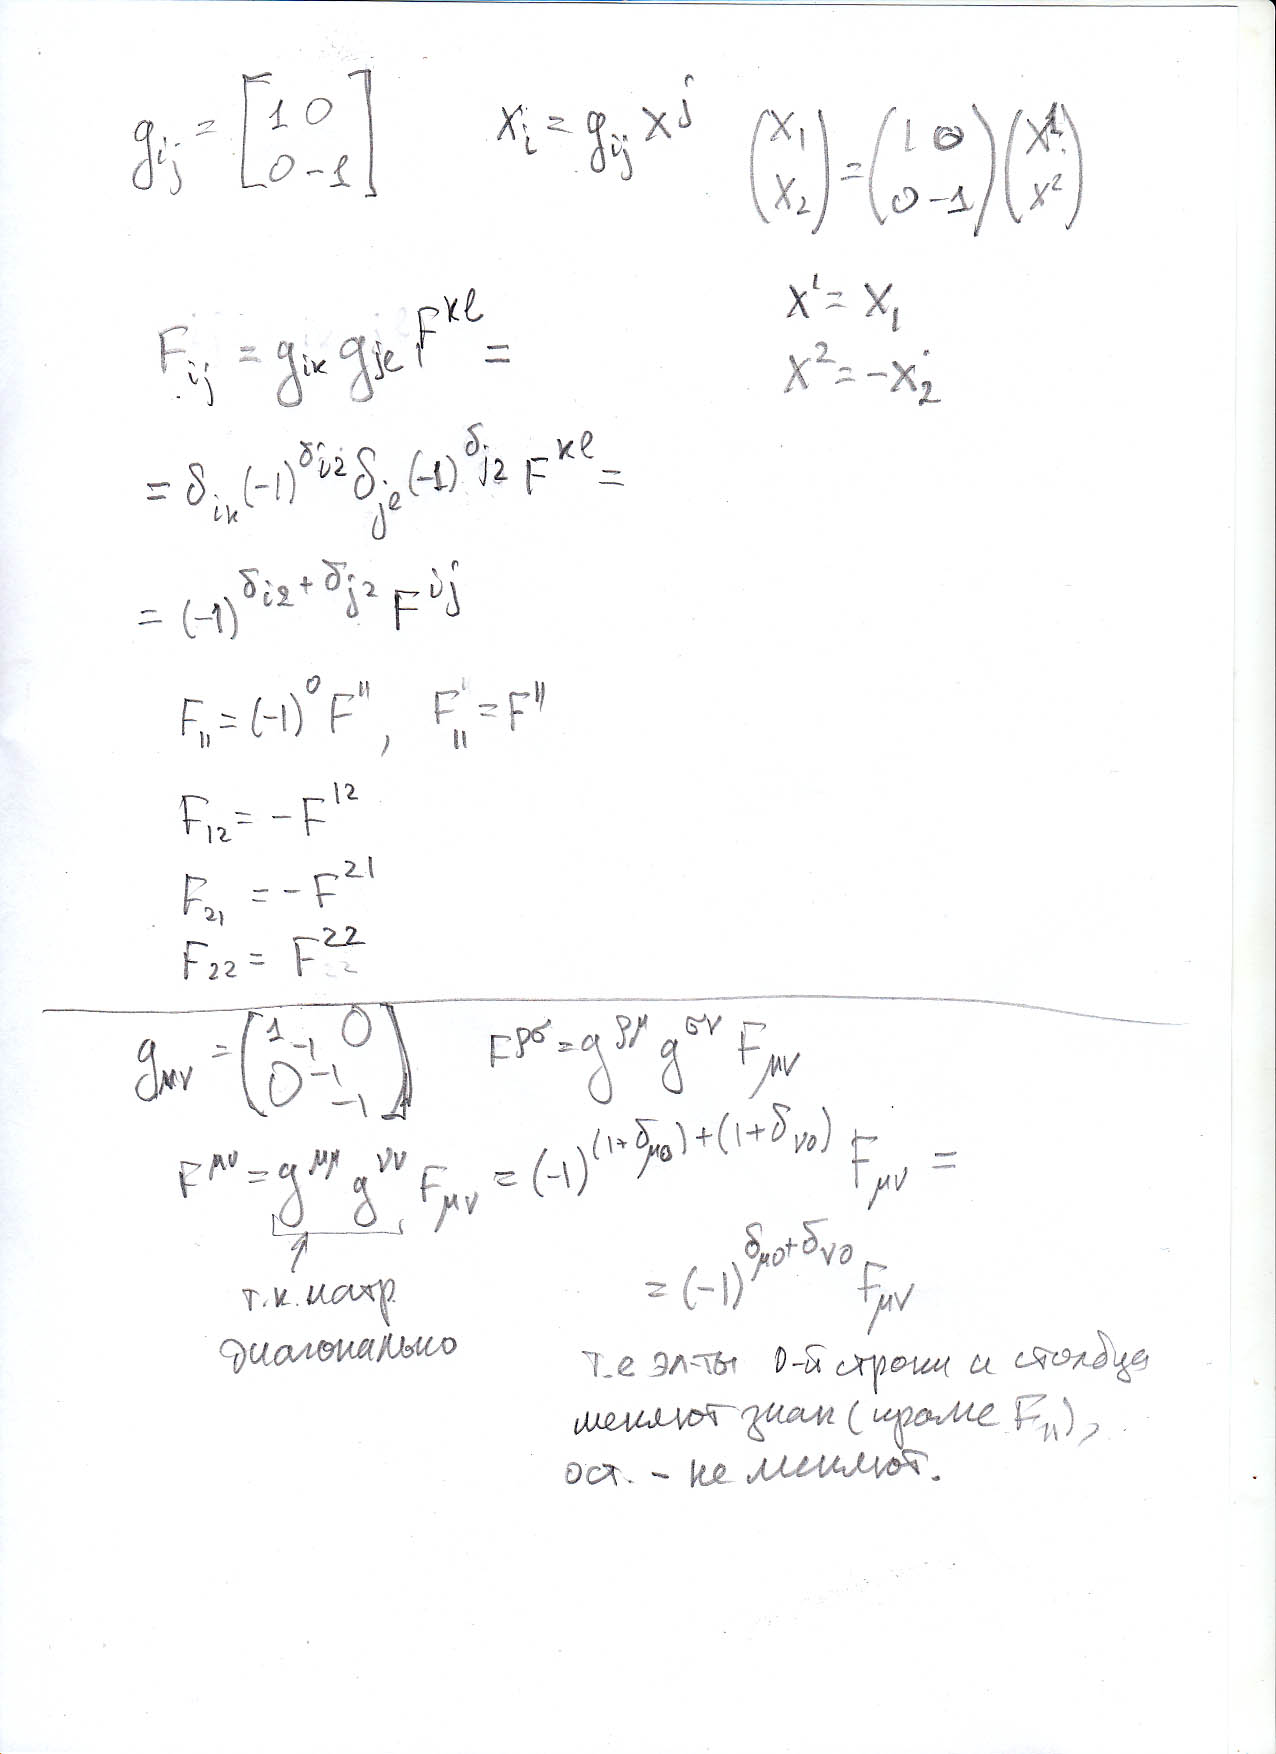 g_{ij} = [1 0; 0 -1]   x_i = g_{ij} x^j   (x_1; x_2) = (1 0; 0 -1)(x^1; x^2)
x^1 = x_1
x^2 = -x_2
F_{ij} = g_{ik} g_{jl} F^{kl} =
= δ_{ik} (-1)^{δ_{i2}} δ_{jl} (-1)^{δ_{j2}} F^{kl} =
= (-1)^{δ_{i2} + δ_{j2}} F^{ij}
F_{11} = (-1)^0 F^{11}, F_{11} = F^{11}
F_{12} = -F^{12}
F_{21} = -F^{21}
F_{22} = F^{22}
g_{μν} = (1 -1 0; 0 -1 -1)   F^{ρσ} = g^{ρμ} g^{σν} F_{μν}
F^{μν} = g^{μμ} g^{νν} F_{μν} = (-1)^{(1+δ_{μ0})+(1+δ_{ν0})} F_{μν} =
= (-1)^{δ_{μ0}+δ_{ν0}} F_{μν}
т.к. матр.
диагонально
т.е эл-ты 0-й строки и столбца
меняют знак (кроме F_{11}),
ост. - не меняют.